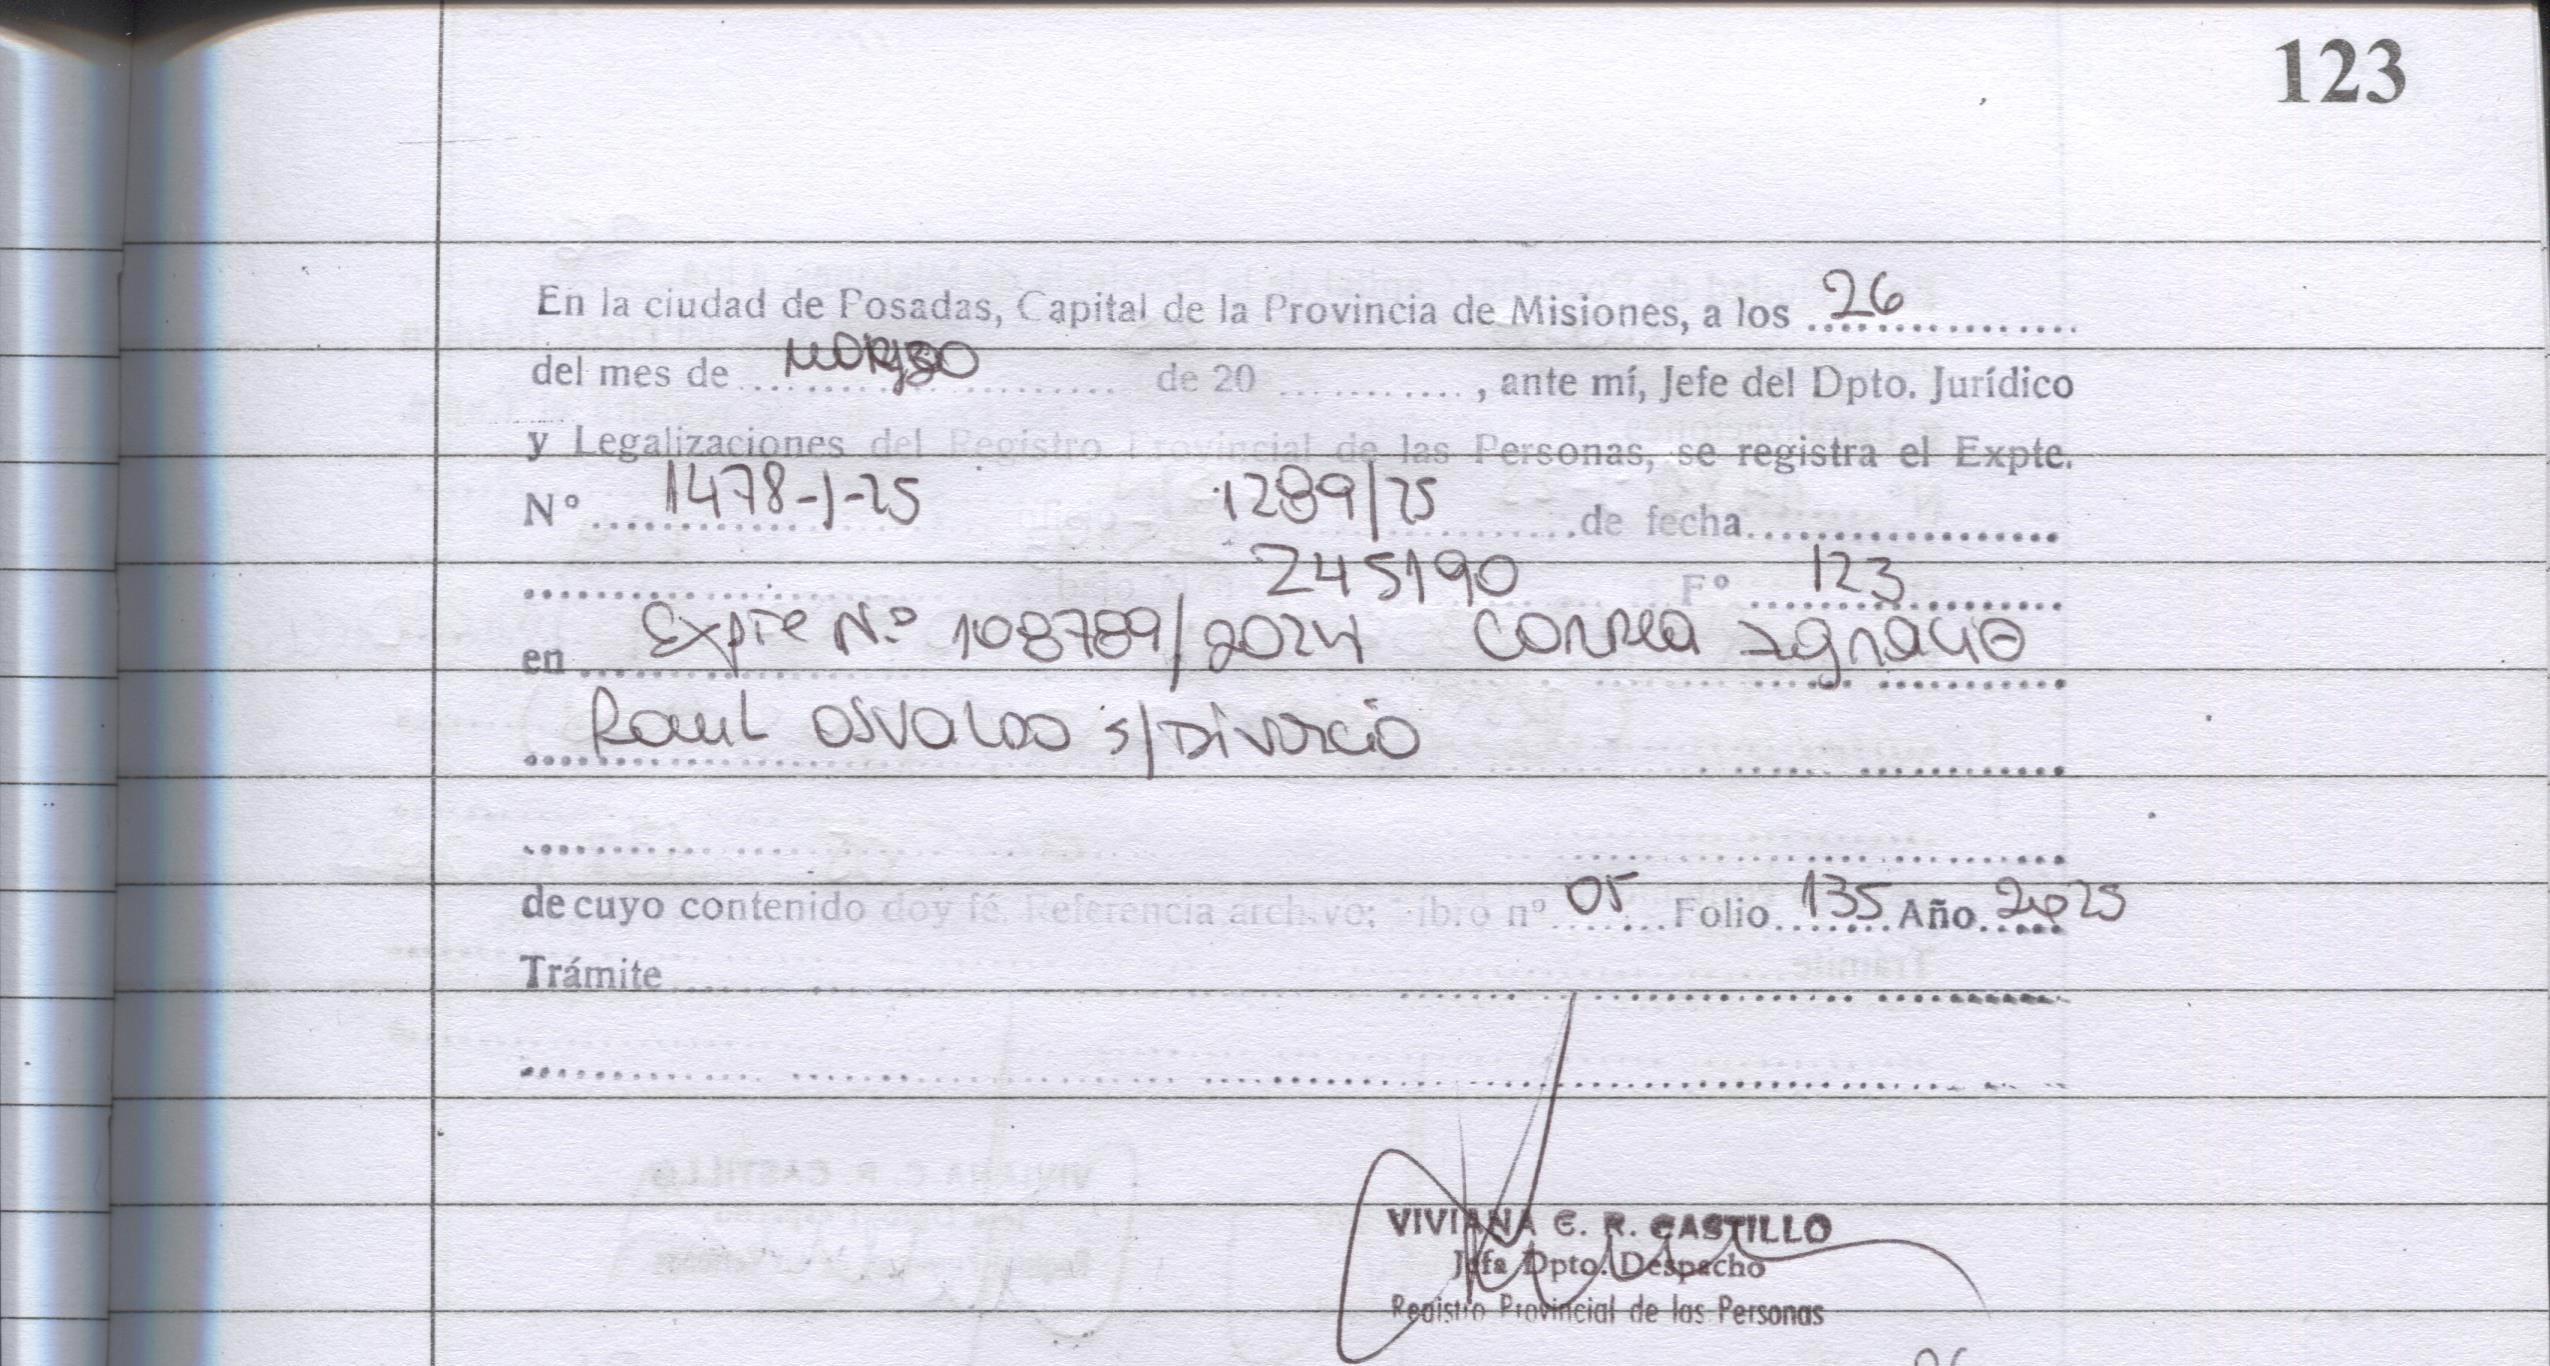 123
En la ciudad de Posadas, Capital de la Provincia de Misiones, a los 26
del mes de de 20 , ante mí, Jefe del Dpto. Jurídico
y Legalizaciones del Registro Provincial de las Personas, se registra el Expte.
Nº 1478-J-25 1289/25 de fecha
245190 Fº 123
en Expte N.º 108789/2024 CORREA IGNACIO
RAUL OSVALDO S/DIVORCIO
de cuyo contenido doy fé. Referencia archivo: Libro nº 05 Folio 135 Año 2025
Trámite
VIVIANA C. R. CASTILLO
Jefa Dpto. Despacho
Registro Provincial de las Personas